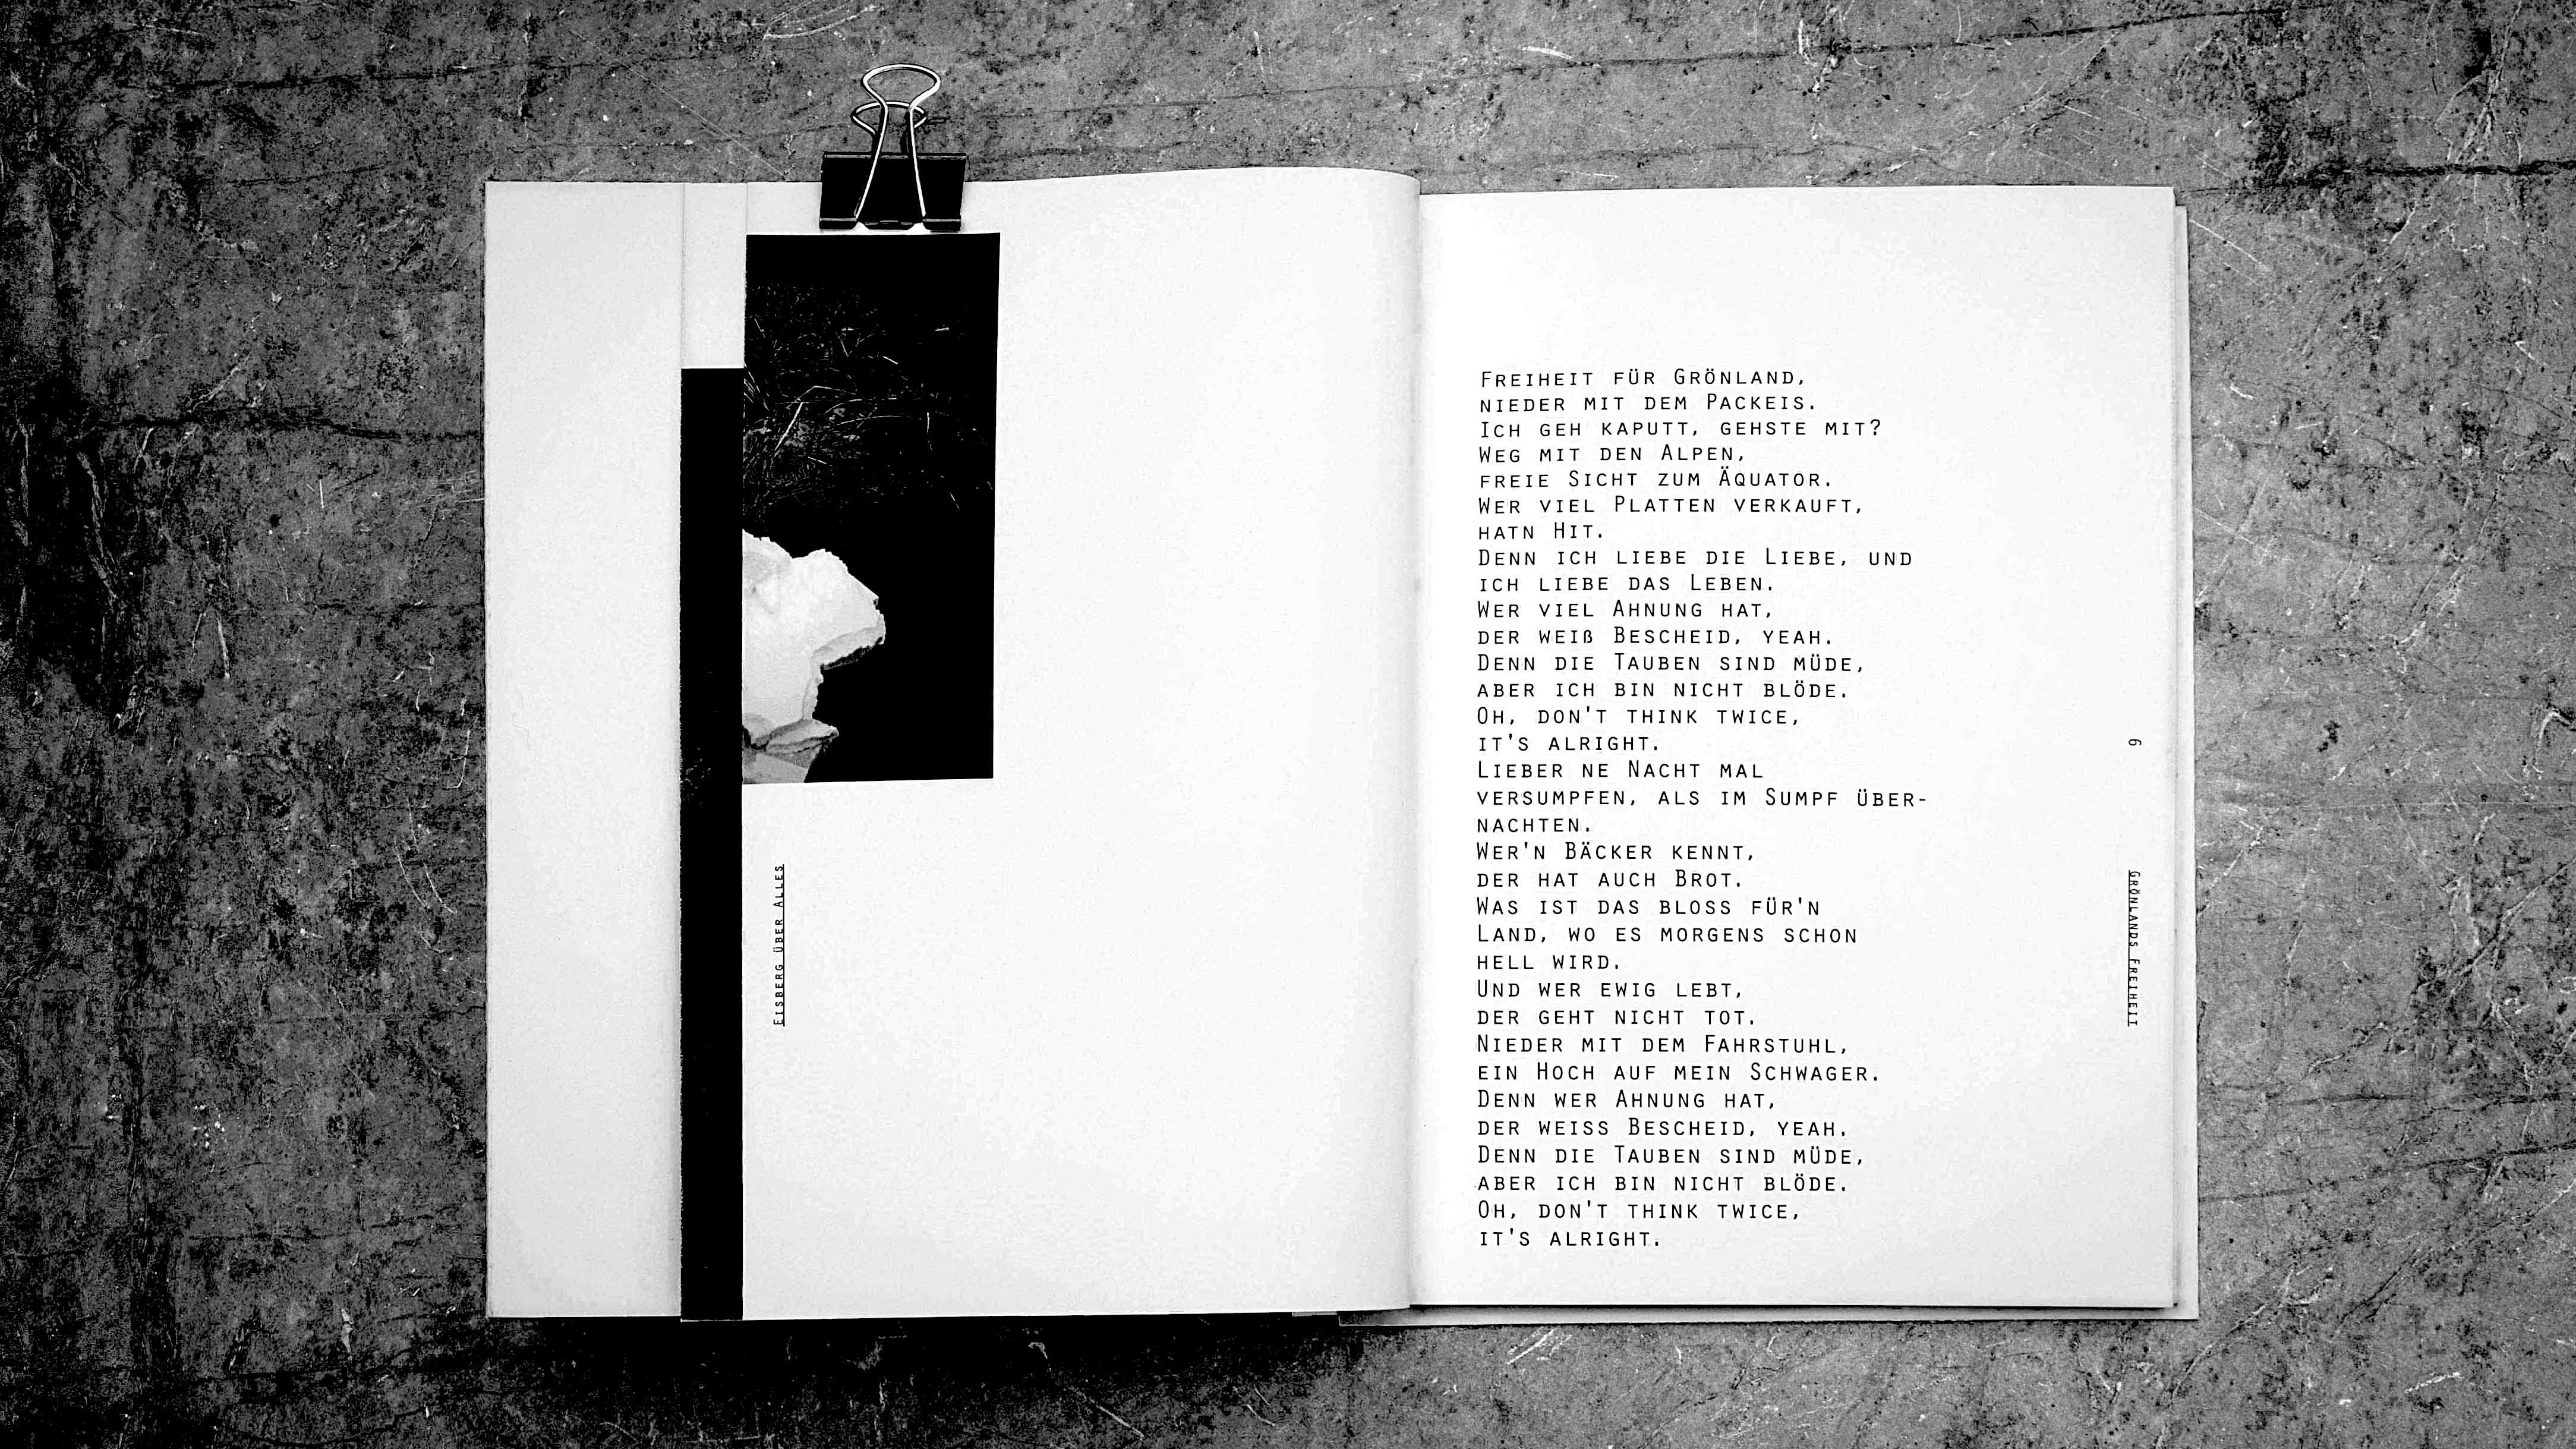 Eisberg über Alles
Freiheit für Grönland,
nieder mit dem Packeis.
Ich geh kaputt, gehste mit?
Weg mit den Alpen,
freie Sicht zum Äquator.
Wer viel Platten verkauft,
hatn Hit.
Denn ich liebe die Liebe, und
ich liebe das Leben.
Wer viel Ahnung hat,
der weiß Bescheid, yeah.
Denn die Tauben sind müde,
aber ich bin nicht blöde.
Oh, don't think twice,
it's alright.
Lieber ne Nacht mal
versumpfen, als im Sumpf über-
nachten.
Wer'n Bäcker kennt,
der hat auch Brot.
Was ist das bloss für'n
Land, wo es morgens schon
hell wird.
Und wer ewig lebt,
der geht nicht tot.
Nieder mit dem Fahrstuhl,
ein Hoch auf mein Schwager.
Denn wer Ahnung hat,
der weiss Bescheid, yeah.
Denn die Tauben sind müde,
aber ich bin nicht blöde.
Oh, don't think twice,
it's alright.
6
Grönlands Freiheit